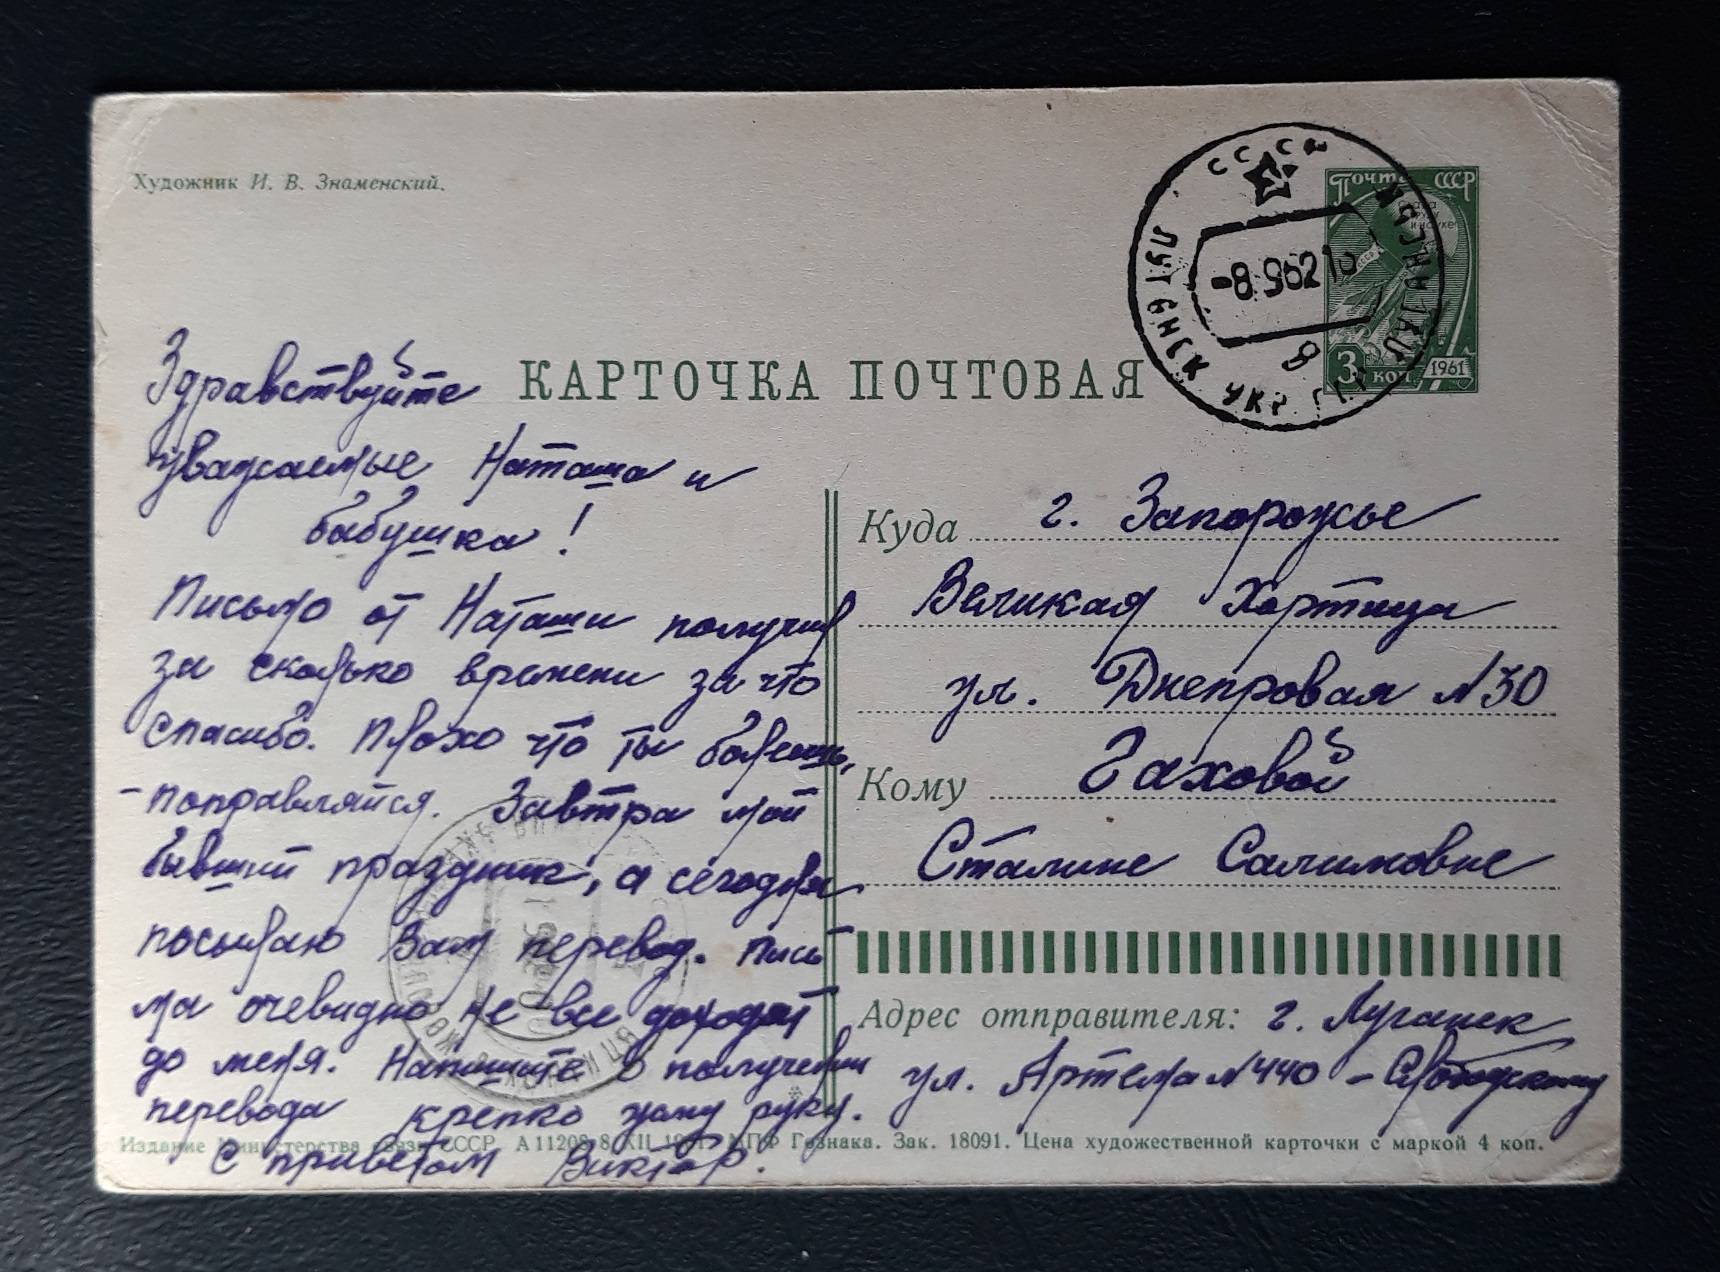 Художник И. В. Знаменский.
КАРТОЧКА ПОЧТОВАЯ
СССР
ЛУГАНСК УКР.
-8.9.62 10
8
Почта СССР
3 коп
1961
Здравствуйте
уважаемые Наташа и
бабушка!
Письмо от Наташи получил
за сколько времени за что
спасибо. Плохо что ты болеешь,
-поправляйся. Завтра мой
бывший праздник, а сегодня
посылаю Вам перевод. Пись
ма очевидно не все доходят
до меня. Напишите о получении
перевода крепко жму руку.
С приветом Виктор.
Куда г. Запорожье
Великая Хортица
ул. Днепровая №30
Кому Гаховой
Сталине Салимовне
Адрес отправителя: г. Луганск
ул. Артема №440 - Слободскому
Издание Министерства связи СССР. А 11208 8/XII 1961. МПФ Гознака. Зак. 18091. Цена художественной карточки с маркой 4 коп.